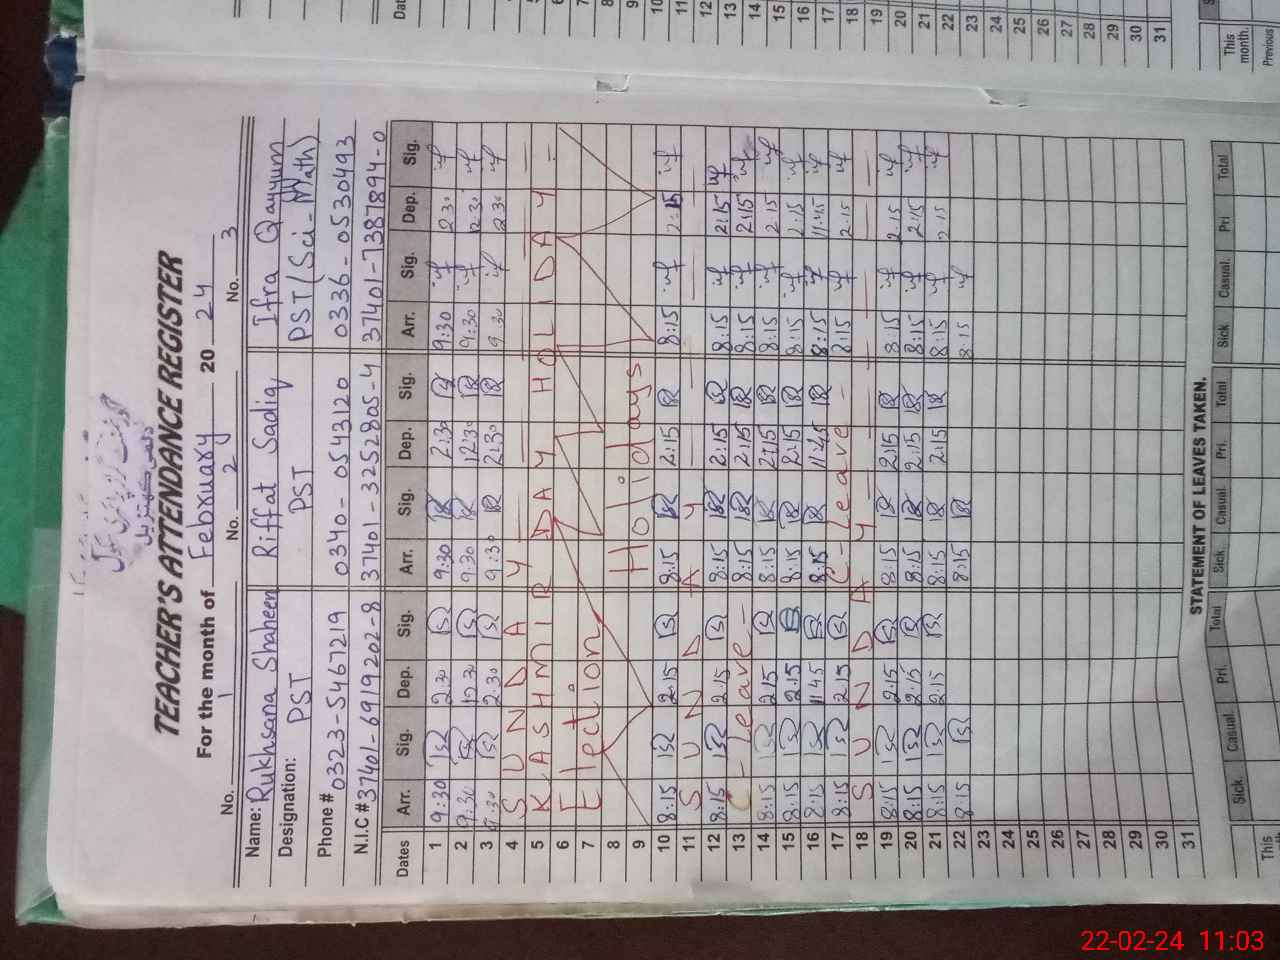 TEACHER'S ATTENDANCE REGISTER
For the month of February 20 24
No. 1 No. 2 No. 3
Name: Rukhsana Shaheen Riffat Sadiq Ifra Qayyum
Designation: PST PST PST (Sci-Math)
Phone # 0323-5467219 0340-0543120 0336-0530493
N.I.C # 37401-6919202-8 37401-3252805-4 37401-7387894-0
Dates Arr. Sig. Dep. Sig. Arr. Sig. Dep. Sig. Arr. Sig. Dep. Sig.
1 9:30 2:30 9:30 2:30 9:30 2:30
2 9:30 12:30 9:30 12:30 9:30 12:30
3 9:30 2:30 9:30 2:30 9:30 2:30
4 SUNDAY
5 KASHMIRY DAY HOLIDAY
6 Election
7
8 Holidays
9
10 8:15 2:15 8:15 2:15 8:15 2:15
11 SUNDAY
12 8:15 2:15 8:15 2:15 8:15 2:15
13 C-Leave- 8:15 2:15 8:15 2:15
14 8:15 2:15 8:15 2:15 8:15 2:15
15 8:15 2:15 8:15 2:15 8:15 2:15
16 8:15 11:45 8:15 11:45 8:15 11:45
17 8:15 2:15 C-Leave- 8:15 2:15
18 SUNDAY
19 8:15 2:15 8:15 2:15 8:15 2:15
20 8:15 2:15 8:15 2:15 8:15 2:15
21 8:15 2:15 8:15 2:15 8:15 2:15
22 8:15 8:15 8:15
23
24
25
26
27
28
29
30
31
STATEMENT OF LEAVES TAKEN.
Sick. Casual. Pri. Total Sick. Casual. Pri. Total Sick Casual. Pri Total
This
Dat
5
6
7
8
9
10
11
12
13
14
15
16
17
18
19
20
21
22
23
24
25
26
27
28
29
30
31
This
month.
Previous
22-02-24 11:03